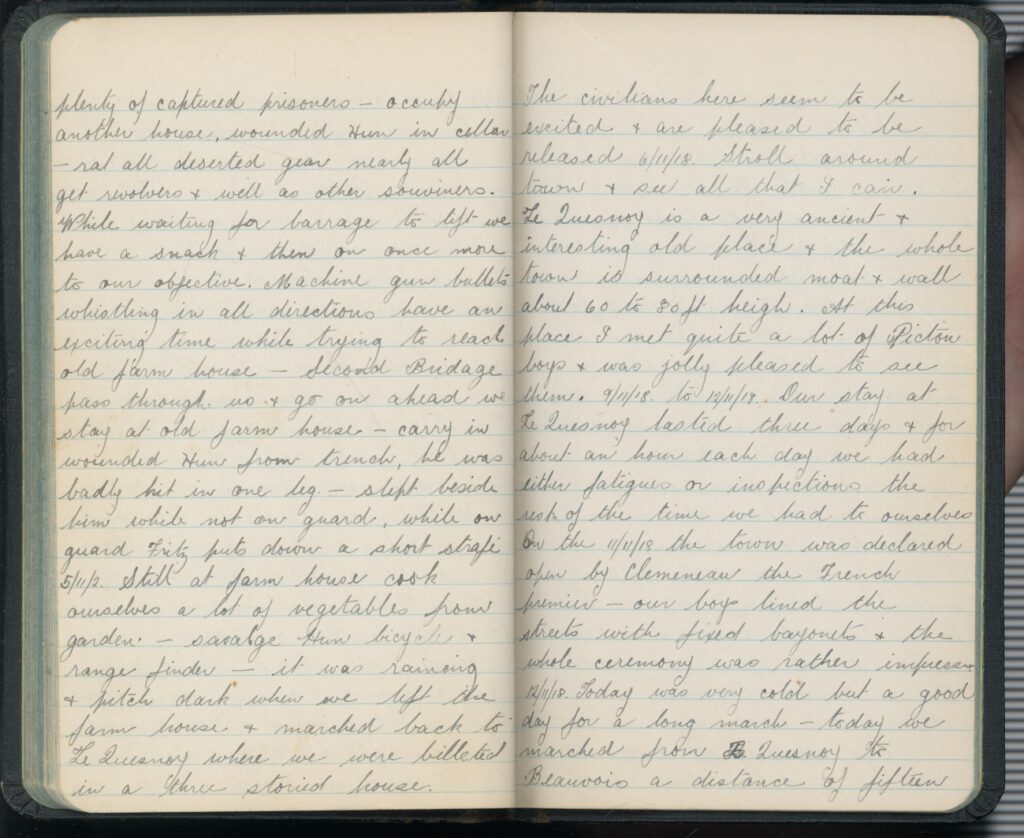 plenty of captured prisoners – occupy
another house, wounded Hun in cellar
– rat all deserted gear nearly all
get revolvers & well as other souviners.
While waiting for barrage to lift we
have a snack & then on once more
to our objective. Machine gun bullets
whistling in all directions have an
exciting time while trying to reach
old farm house – Second Bridage
pass through us & go on ahead we
stay at old farm house – carry in
wounded Hun from trench, he was
badly hit in one leg – slept beside
him while not on guard, while on
guard Fritz puts down a short strafe
5/11/2. Still at farm house cook
ourselves a lot of vegetables from
garden – savalge Hun bicycle &
range finder – it was raining
& pitch dark when we left the
farm house & marched back to
Le Quesnoy where we were billeted
in a three storied house.
The civilians here seem to be
excited & are pleased to be
released 6/11/18. Stroll around
town & see all that I can.
Le Quesnoy is a very ancient &
interesting old place & the whole
town is surrounded moat & wall
about 60 to 80ft heigh. At this
place I met quite a lot of Picton
boys & was jolly pleased to see
them. 9/11/18. to 12/11/18. Our stay at
Le Quesnoy lasted three days & for
about an hour each day we had
either fatigues or inspections the
rest of the time we had to ourselves
On the 11/11/18 the town was declared
open by Clemeneau the French
premier – our boys lined the
streets with fixed bayonets & the
whole ceremony was rather
12/11/18. Today was very cold but a good
day for a long march – today we
marched from Le Quesnoy to
Beauvois a distance of fifteen